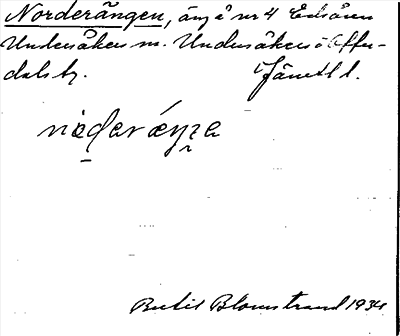 Norderängen, äng å nr 4 Edsåsen
Undersåkers sn. Undersåkers o Offer-
dals tg. Jämtl l.
nòḏerǽŋa
Bertil Blomstrand 1934